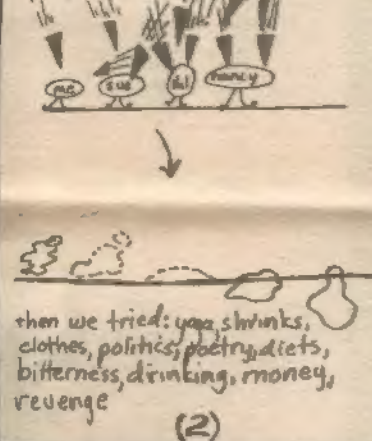 me sue nancy
then we tried: yoga, shrinks,
clothes, politics, poetry, diets,
bitterness, drinking, money,
revenge
(2)